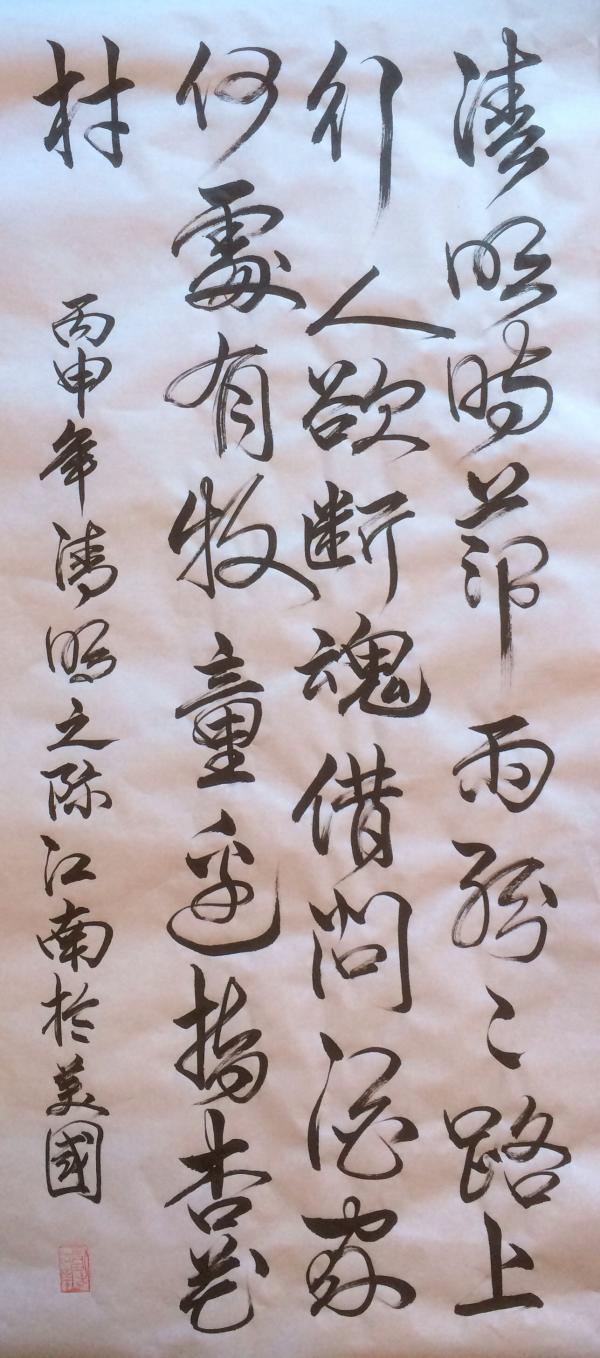 清明時節雨紛〻路上
行人欲断魂借問酒家
何處有牧童遥指杏花
村
丙申年清明之际江南於美國